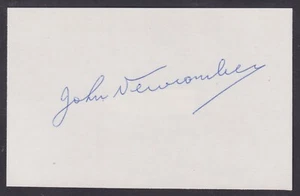 John Newcomber